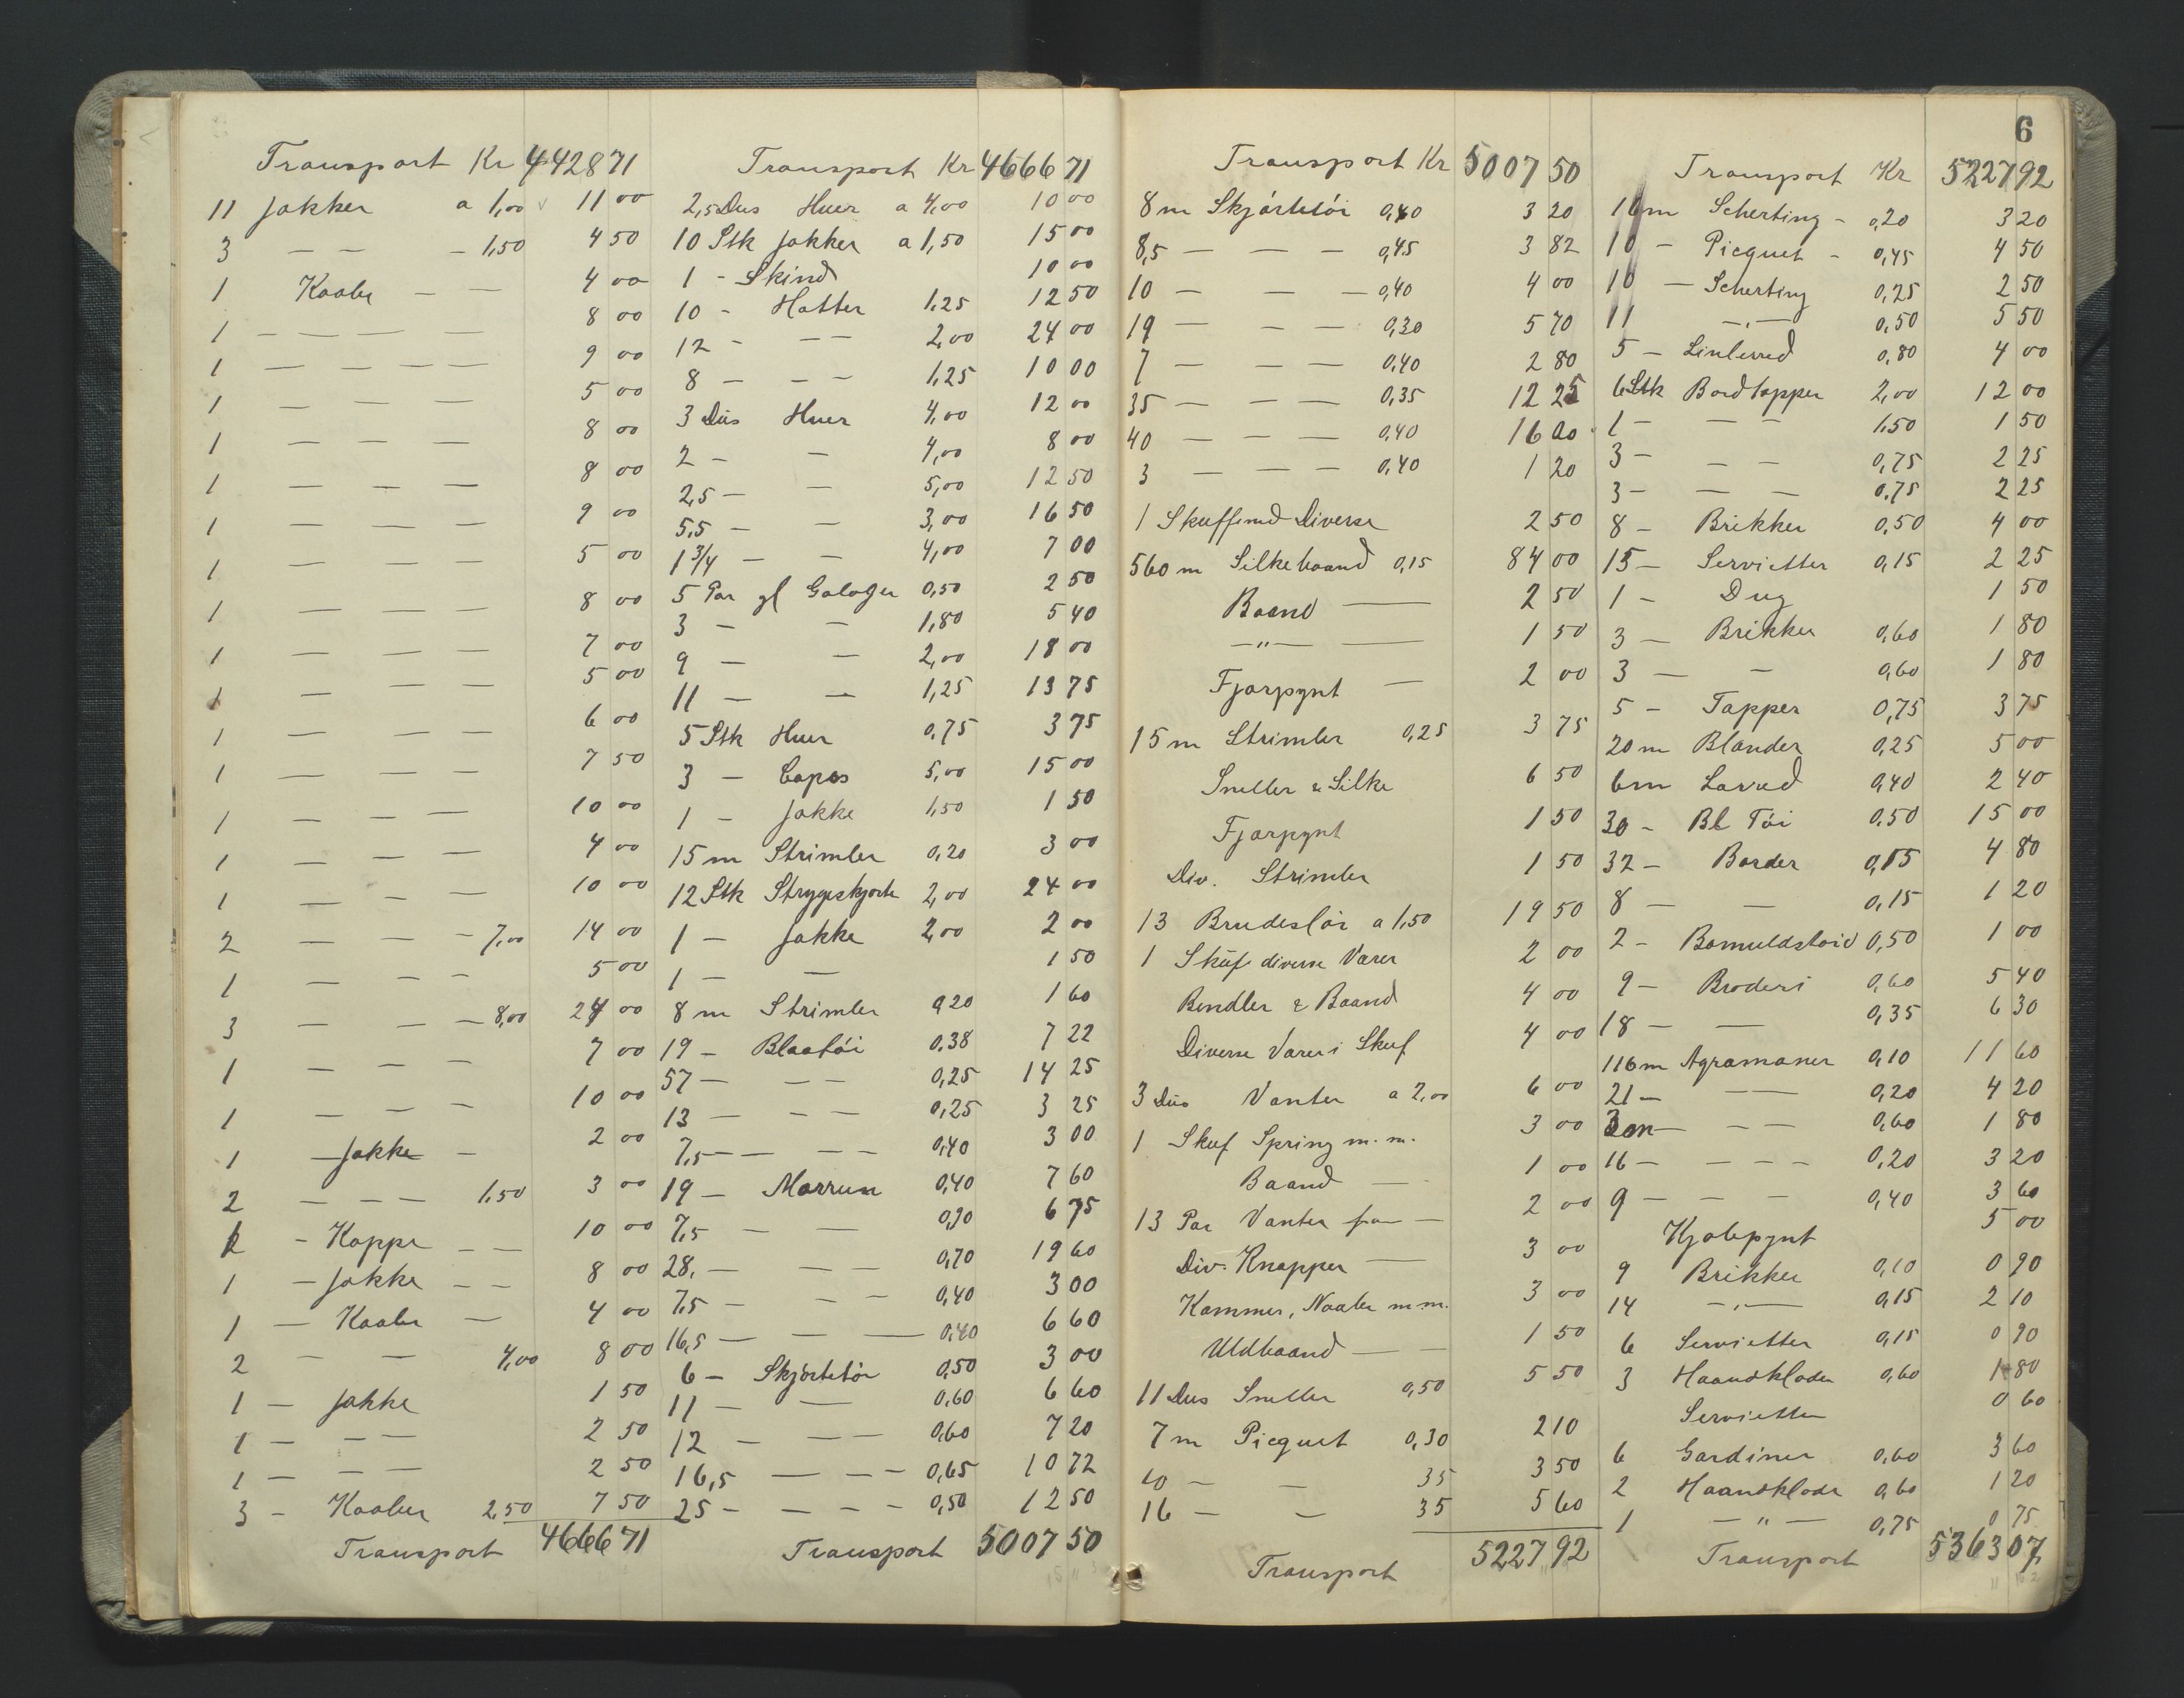 6
Transport Kr 4428 71
11 Jakker a 1,00 11 00
3 — — - 1,50 4 50
1 Kaabe — — 4 00
1 — — — — 8 00
1 — — — — 9 00
1 — — — 5 00
1 — — — 8 00
1 — — — 8 00
1 — — — 9 00
1 — — — 5 00
1 — — — 8 00
1 — — — 7 00
1 — — — 5 00
1 — — — 6 00
1 — — — 7 50
1 — — — 10 00
1 — — — 4 00
1 — — — 10 00
2 — — — 7,00 14 00
1 — — — 5 00
3 — — — 8,00 24 00
1 — — — 7 00
1 — — — 10 00
1 — Jakke — 2 00
2 — — — 1,50 3 00
1 - Kappe — — 10 00
1 — Jakke — — 8 00
1 — Kaabe — 4 00
2 — — 4,00 8 00
1 — Jakke 1 50
1 — — — 2 50
1 — — — 2 50
3 — Kaaber 2,50 7 50
Transport 4666 71
Transport Kr 4666 71
2,5 Dus Huer a 4,00 10 00
10 Stk Jakker a 1,50 15 00
1 - Skind 10 00
10 - Hatter 1,25 12 50
12 - — — 2,00 24 00
8 — — — 1,25 10 00
3 Dus Huer 4,00 12 00
2 — — 4,00 8 00
2,5 — — 5,00 12 50
5,5 — — 3,00 16 50
1 3/4 — — 4,00 7 00
5 Par gl Galoger 0,50 2 50
3 — — 1,80 5 40
9 — — 2,00 18 00
11 — — 1,25 13 75
5 Stk Huer 0,75 3 75
3 — Capes 5,00 15 00
1 — Jakke 1,50 1 50
15 m Strimler 0,20 3 00
12 Stk Strygeskjorte 2,00 24 00
1 — Jakke 2,00 2 00
1 — — 1 50
8 m Strimler 0,20 1 60
19 — Blaatöi 0,38 7 22
57 — — — 0,25 14 25
13 — — — 0,25 3 25
7,5 — — — 0,40 3 00
19 — Marrun 0,40 7 60
7,5 — — 0,90 6 75
28, — — — 0,70 19 60
7,5 — — — 0,40 3 00
16,5 — — — 0,40 6 60
6 — Skjörtetöi 0,50 3 00
11 — — 0,60 6 60
12 — — — 0,60 7 20
16,5 — — — 0,65 10 72
25 — — — — 0,50 12 50
Transport 5007 50
Transport Kr 5007 50
8 m Skjörtetöi 0,40 3 20
8,5 — — — 0,45 3 82
10 — — — 0,40 4 00
19 — — — 0,30 5 70
7 — — — 0,40 2 80
35 — — — 0,35 12 25
40 — — — 0,40 16 00
3 — — — 0,40 1 20
1 Skuffe med Diverse 2 50
560 m Silkebaand 0,15 84 00
Baand — 2 50
— " — — 1 50
Fjærpynt — 2 00
15 m Strimler 0,25 3 75
Sneller & Silke 6 50
Fjærpynt 1 50
Div. Strimler 1 50
13 Brudeslör a 1,50 19 50
1 Skuf diverse Varer 2 00
Bendler & Baand 4 00
Diverse Varer i Skuf 4 00
3 Dus Vanter a 2,00 6 00
1 Skuf Spring m. m. 3 00
Baand — 1 00
13 Par Vanter — 2 00
Div. Knapper — 3 00
Kammer, Naale m m. 3 00
Uldbaand — — 1 50
11 Dus Sneller 0,50 5 50
7 m Picquet 0,30 2 10
10 — — 35 3 50
16 — — 35 5 60
Transport 5227 92
Transport Kr 5227 92
16 m Scherting - 0,20 3 20
10 — Picquet - 0,45 4 50
10 — Scherting 0,25 2 50
11 — , — 0,50 5 50
5 — Linlerred 0,80 4 00
6 Stk Bordtæpper 2,00 12 00
1 — — — 1,50 1 50
3 — — — 0,75 2 25
3 — — — 0,75 2 25
8 — Brikker 0,50 4 00
15 — Servietter 0,15 2 25
1 — Dug 1 50
3 — Brikker 0,60 1 80
3 — — 0,60 1 80
5 — Tæpper 0,75 3 75
20 m Blander 0,25 5 00
6 m Lærred 0,40 2 40
30 — Bl Töi 0,50 15 00
32 — Border 0,15 4 80
8 — — 0,15 1 20
2 — Bomuldstöi 0,50 1 00
9 — Broderi 0,60 5 40
18 — — 0,35 6 30
116 m Agramaner 0,10 11 60
21 — — 0,20 4 20
3 m — — — 0,60 1 80
16 — — — — 0,20 3 20
9 — — — 0,40 3 60
Kjolepynt 5 00
9 Brikker 0,10 0 90
14 — , — 0,15 2 10
6 Servietter 0,15 0 90
3 Haandklæder 0,60 1 80
Servietter 0 60
6 Gardiner 0,60 3 60
2 Haandklæde 0,60 1 20
1 — " — 0,75 0 75
Transport 5363 07